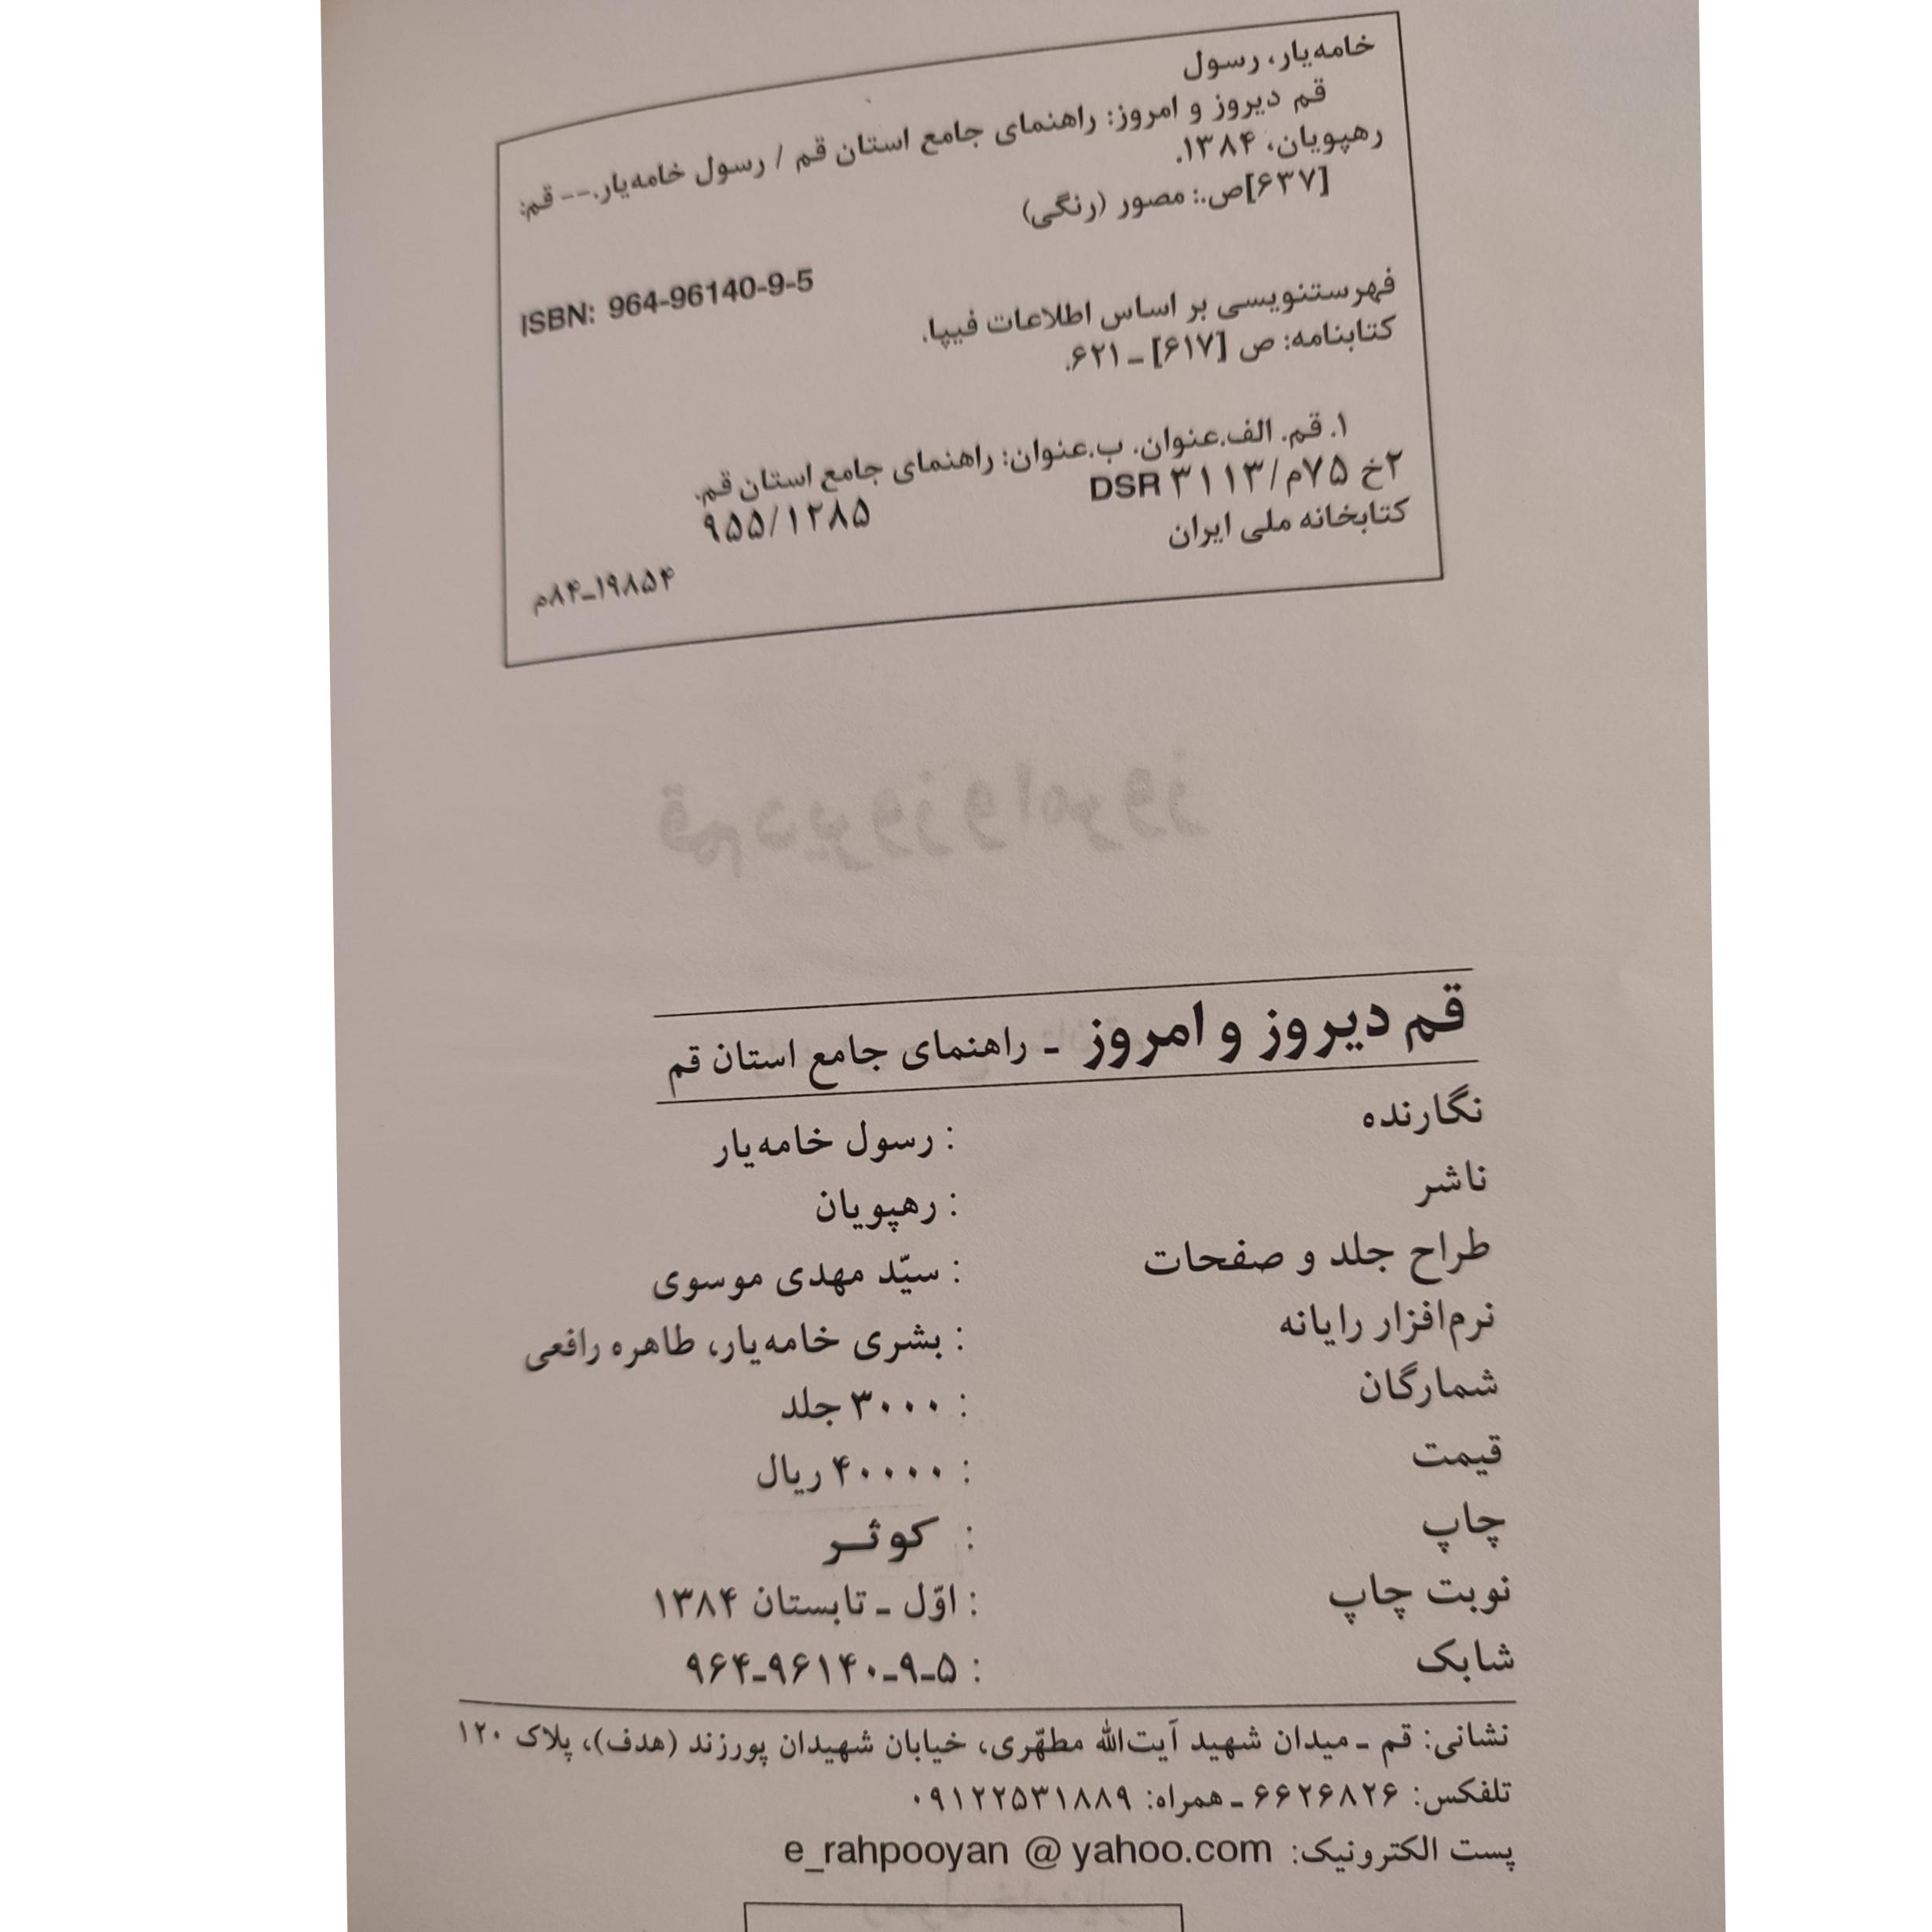 خامه‌یار، رسول
قم دیروز و امروز: راهنمای جامع استان قم / رسول خامه‌یار.-- قم:
رهپویان، ۱۳۸۴.
[۶۳۷]ص.: مصور (رنگی)
ISBN: 964-96140-9-5
فهرستنویسی بر اساس اطلاعات فیپا.
کتابنامه: ص [۶۱۷] ـ ۶۲۱.
۱. قم. الف.عنوان. ب.عنوان: راهنمای جامع استان قم.
۲خ ۷۵م/۳۱۱۳ DSR
۹۵۵/۱۲۸۵
کتابخانه ملی ایران
۱۹۸۵۴ـ۸۴م
قم دیروز و امروز
قم دیروز و امروز ـ راهنمای جامع استان قم
نگارنده : رسول خامه‌یار
ناشر : رهپویان
طراح جلد و صفحات : سیّد مهدی موسوی
نرم‌افزار رایانه : بشری خامه‌یار، طاهره رافعی
شمارگان : ۳۰۰۰ جلد
قیمت : ۴۰۰۰۰ ریال
چاپ : کوثـر
نوبت چاپ : اوّل ـ تابستان ۱۳۸۴
شابک : ۵ـ۹ـ۹۶۱۴۰ـ۹۶۴
نشانی: قم ـ میدان شهید آیت‌الله مطهّری، خیابان شهیدان پورزند (هدف)، پلاک ۱۲۰
تلفکس: ۶۶۲۶۸۲۶ ـ همراه: ۰۹۱۲۲۵۳۱۸۸۹
پست الکترونیک: e_rahpooyan @ yahoo.com